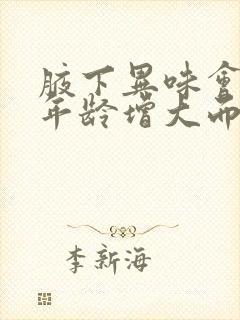 腋下異味會
年龄增大而
李新海